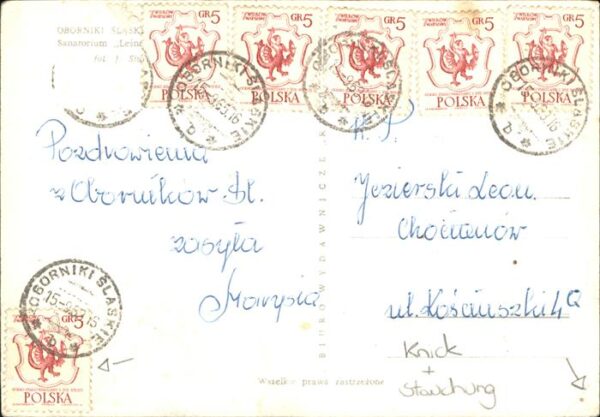 OBORNIKI ŚLĄSKI
Sanatorium „Leśne
fot. J.
GR 5
POLSKA
GR 5
POLSKA
GR 5
POLSKA
GR 5
POLSKA
GR 5
POLSKA
OBORNIKI ŚLĄSKIE
OBORNIKI ŚLĄSKIE
Pozdrowienia
z Oborników Śl.
zasyła
Marysia
BIURO WYDAWNICZE
W. P.
Jezierski Leon
Chocianów
ul. Kościuszki 4
OBORNIKI ŚLĄSKIE
GR 5
POLSKA
Wszelkie prawa zastrzeżone
Knick
+
Stauchung